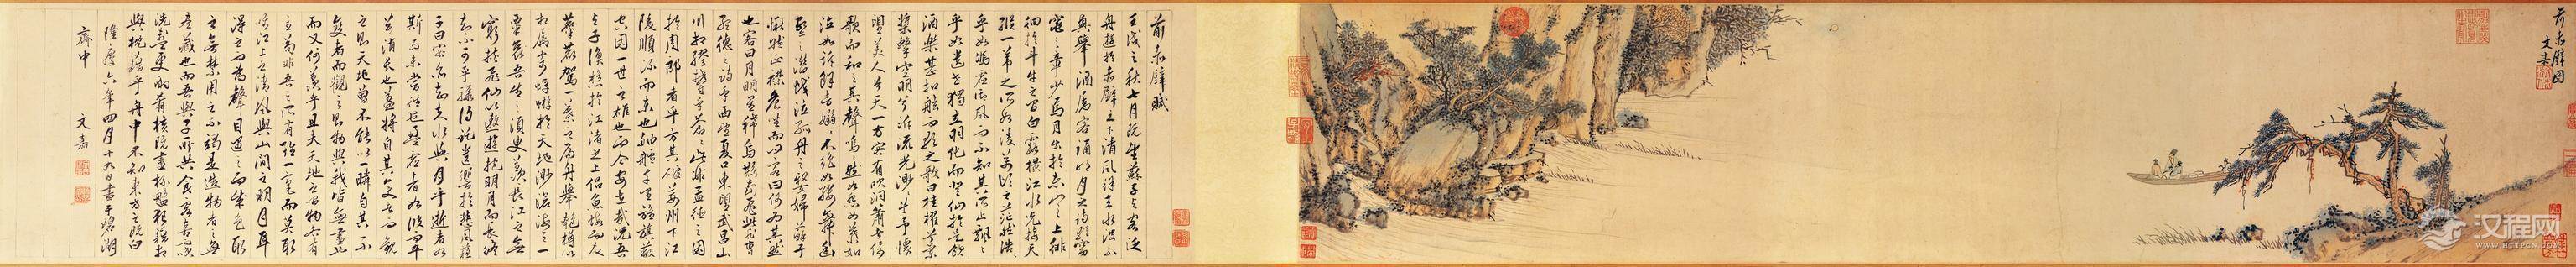 前赤壁圖
文嘉
前赤壁賦
壬戌之秋七月既望蘇子與客泛
舟遊於赤壁之下清風徐來水波不
興舉酒屬客誦明月之詩歌窈
窕之章少焉月出於東山之上徘
徊於斗牛之間白露橫江水光接天
縱一葦之所如凌萬頃之茫然浩浩
乎如馮虛御風而不知其所止飄飄
乎如遺世獨立羽化而登仙於是飲
酒樂甚扣舷而歌之歌曰桂櫂兮蘭
槳擊空明兮泝流光渺渺兮予懷
望美人兮天一方客有吹洞簫者倚
歌而和之其聲嗚嗚然如怨如慕如
泣如訴餘音嫋嫋不絕如縷舞幽
壑之潛蛟泣孤舟之嫠婦蘇子
愀然正襟危坐而問客曰何為其然
也客曰月明星稀烏鵲南飛此非曹
孟德之詩乎西望夏口東望武昌山
川相繆鬱乎蒼蒼此非孟德之困
於周郎者乎方其破荊州下江
陵順流而東也舳艫千里旌旗蔽
空固一世之雄也而今安在哉況吾
與子漁樵於江渚之上侶魚蝦而友
麋鹿駕一葉之扁舟舉匏樽以
相屬寄蜉蝣於天地渺滄海之一
粟哀吾生之須臾羨長江之無
窮挾飛仙以遨遊抱明月而長終
知不可乎驟得託遺響於悲風蘇
子曰客亦知夫水與月乎逝者如
斯而未嘗往也盈虛者如彼而卒
莫消長也蓋將自其變者而觀
之則天地曾不能以一瞬自其不
變者而觀之則物與我皆無盡也
而又何羨乎且夫天地之間物各有
主苟非吾之所有雖一毫而莫取
惟江上之清風與山間之明月耳
得之而為聲目遇之而成色取
之無禁用之不竭是造物者之無
盡藏也而吾與子所共食客喜而笑
洗盞更酌肴核既盡杯盤狼藉相
與枕藉乎舟中不知東方之既白
隆慶六年四月十九日書于碧湖
齋中 文嘉
汉程网
WWW.HTTPCN.COM